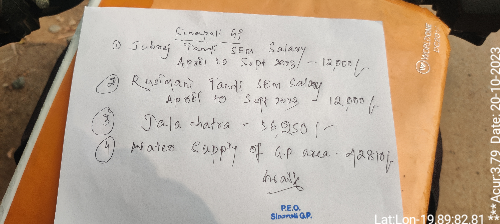 Sinapali GP
① Jubraj Tandi SEM Salary
April to Sept 2023 - 12,000/-
② Rukmani Tandi SEM Salary
April to Sept 2023 - 12,000/-
③ Jala chatra - 56,250/-
④ Water Supply of G.P area -
P.E.O.
Sinapali G.P.
Lat:Lon-19.89:82.81
***Acur:3.79, Date: 20-10-2023